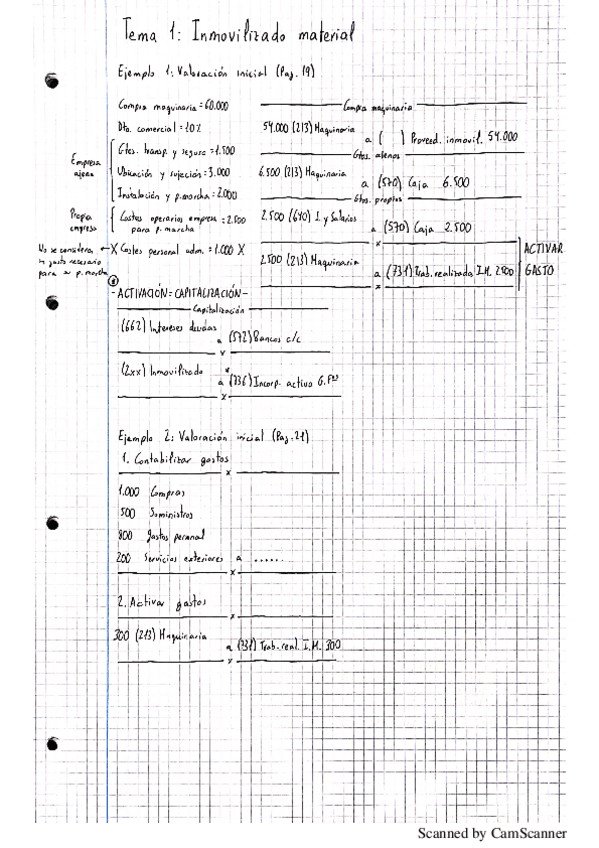 Tema 1: Inmovilizado material
Ejemplo 1: Valoración inicial (Pag. 19)
Compra maquinaria = 60.000
Dto. comercial = 10%
Empresa ajena
Gtos. transp. y seguro = 1.500
Ubicación y sujeción = 3.000
Instalación y p. marcha = 2.000
Propia empresa
Costes operarios empresa = 2.500
para p. marcha
No se considera
un gasto necesario
para la p. marcha
X Costes personal adm. = 1.000 X
Compra maquinaria
54.000 (213) Maquinaria
a ( ) Proveed. inmovil. 54.000
Gtos. ajenos
6.500 (213) Maquinaria
a (570) Caja 6.500
Gtos. propios
2.500 (640) S. y Salarios
a (570) Caja 2.500
x
2.500 (213) Maquinaria
a (731) Trab. realizado I.M. 2.500
x
ACTIVAR
GASTO
- ACTIVACIÓN = CAPITALIZACIÓN -
Capitalización
(662) Intereses deudas
a (572) Bancos c/c
x
(2xx) Inmovilizado
a (736) Incorp. activo G. Fros
x
Ejemplo 2: Valoración inicial (Pag. 21)
1. Contabilizar gastos
x
1.000 Compras
500 Suministros
800 gastos personal
200 Servicios exteriores a ......
x
2. Activar gastos
x
300 (213) Maquinaria
a (731) Trab. real. I.M. 300
x
Scanned by CamScanner